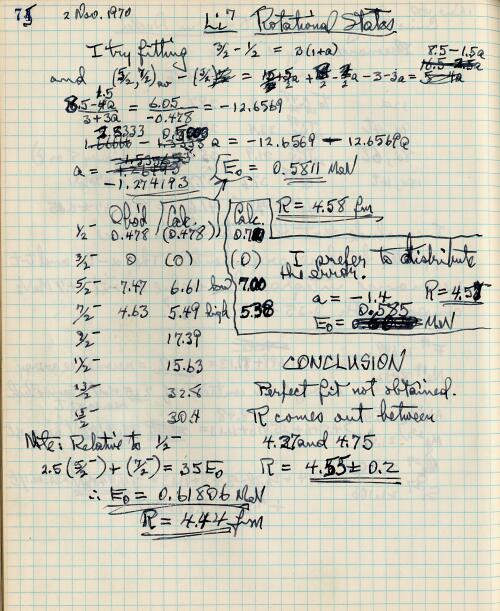 2 Nov. 1970 Li⁷ Rotational States
I try fitting 3/2- − 1/2- = 3(1+a) 8.5-1.5a
and (5/2-, 7/2-)av − (3/2-)
= 6.05/-0.478 = -12.6569
3+3a
a = -12.6569 - 12.6569a
a = -1.274193
E₀ = 0.5811 MeV
R = 4.58 fm
Obs'd Calc. Calc.
1/2- 0.478 (0.478)
3/2- 0 (0) (0)
5/2- 7.47 6.61 low 7.00
7/2- 4.63 5.49 high 5.38
9/2- 17.39
11/2- 15.63
13/2- 32.8
15/2- 30.4
I prefer to distribute
the error.
a = -1.4 R = 4.55
E₀ = 0.585 MeV
CONCLUSION
Perfect fit not obtained.
R comes out between
4.27 and 4.75
R = 4.55 ± 0.2
Note: Relative to 1/2-
2.5(5/2-) + (7/2-) = 35E₀
∴ E₀ = 0.61806 MeV
R = 4.44 fm